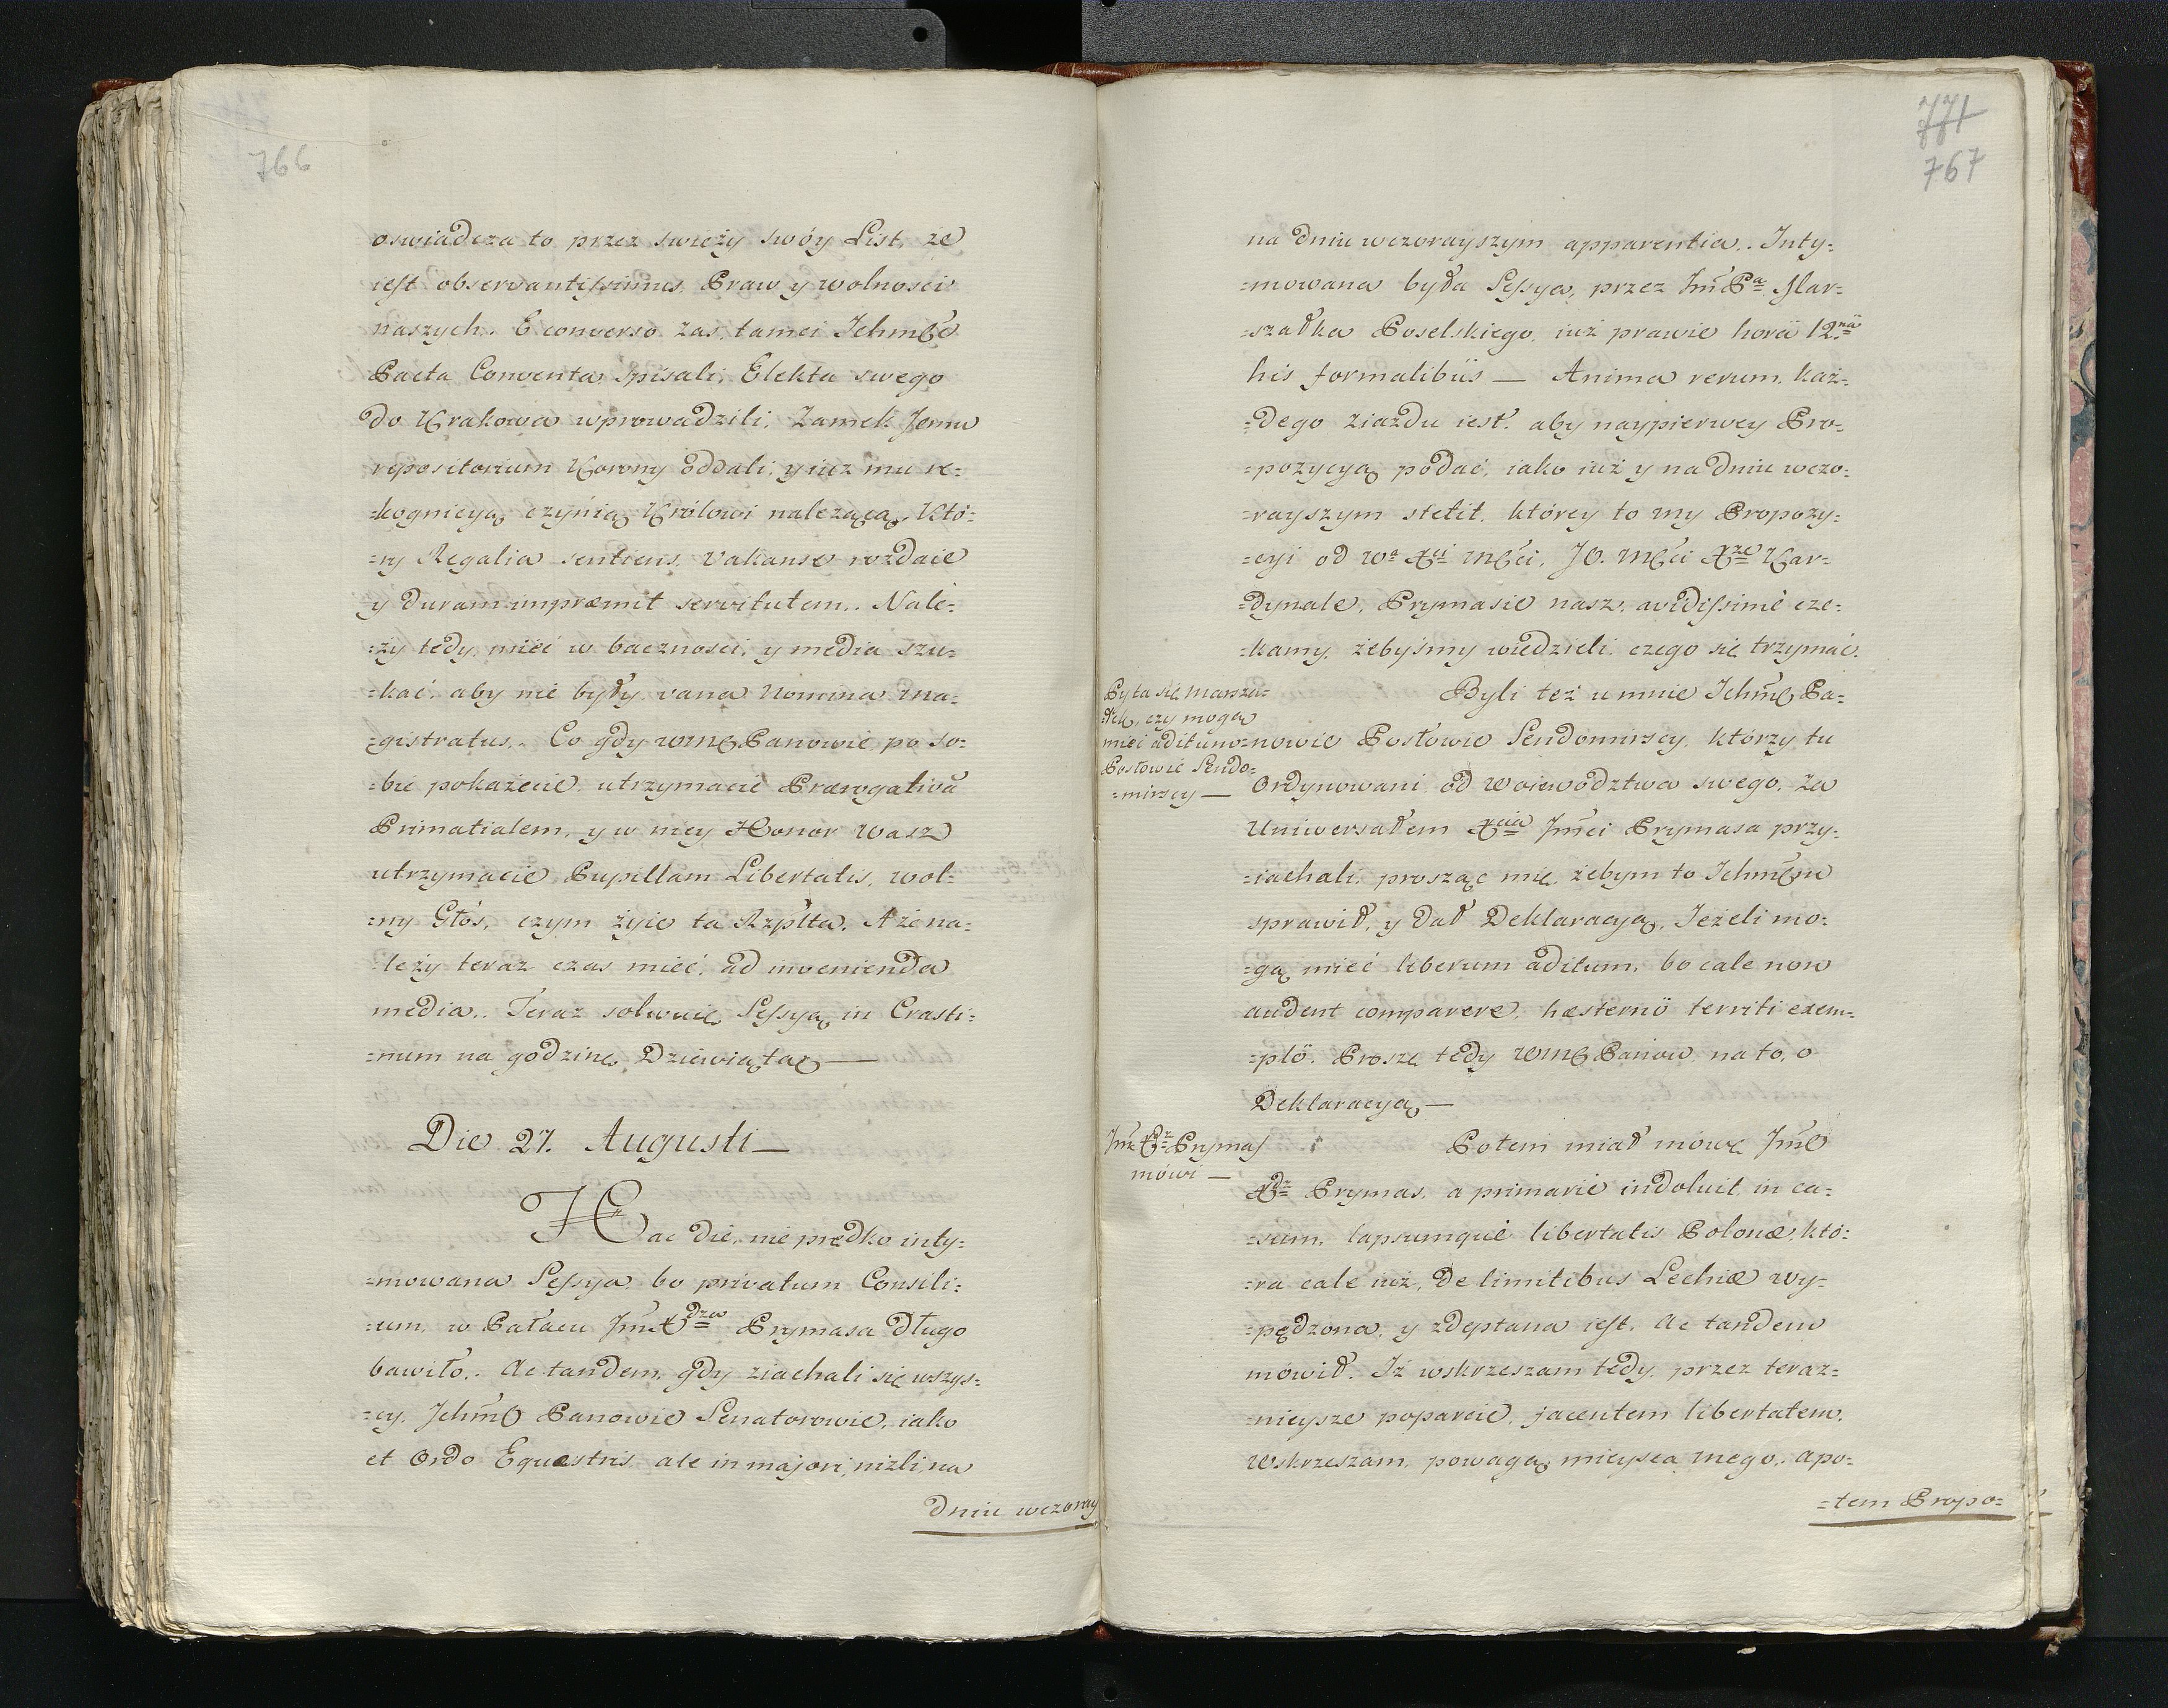 766
oswiadcza to przez swieży swóy List, że
iest observantissimus Praw y wolnosci
naszych. E converso zas, tamci Ichmść
Pacta Conventa spisali, Elekta swego
do Krakowa wprowadzili, Zamek Jemu
repositorium Korony oddali, y iuż mu re=
=kognicyą czynią Królowi należącą, Któ=
=ry Regalia sentiens, Vakanse rozdaie
y duram impræmit servitutem. Nale=
=ży tedy mieć w bacznosci, y media szu=
=kać, aby nie były vana Nomina ma=
=gistratus. Co gdy WMć Panowie po so=
=bie pokażecie utrzymacie Prærogativã
Primatialem, y w niey Honor Wasz
utrzymacie Pupillam Libertatis, wol=
=ny Głos, czym żyie ta Rzplta, A że na=
=leży teraz czas mieć, ad invenienda
media. Teraz solwuię Sessyą in Crasti=
=num na godzinę Dziewiątą —
Die 27. Augusti —
Hac die, nie prędko inty=
=mowana Sessya bo privatum Consili=
=um, w Pałacu Jmć Xdza Prymasa długo
bawiło. Ac tandem, gdy ziachali się wszys=
=cy, Ichmć Panowie Senatorowie, iako
et Ordo Equæstris ale in majori, niżli, na
dniu wczoray
771
767
na dniu wczorayszym apparentia. Inty=
=mowana była Sessya, przez Jmć Pa Mar=
=szałka Poselskiego, iuż prawie horâ 12nâ
his formalibûs — Anima rerum, każ=
=dego ziazdu iest, aby naypierwey Pro=
=pozycyą podać, iako iuż y na dniu wczo=
=rayszym stetit, którey to my Propozy=
=cyi od Wa Xci Mści, JO. Mści Xże Kar=
=dynale, Prymasie nasz, avidissimè cze=
=kamy, żebyśmy wiedzieli, czego się trzymać.
Pyta się Marsza=
łek, czy mogą
mieć aditum
Posłowie Sendo=
=mirscy —
Byli też u mnie Ichmć Pa=
=nowie Posłowie Sendomirscy, którzy tu
Ordynowani od Woiewództwa swego, za
Uniwersałem Xcia Jmści Prymasa przy=
=iachali, prosząc mię, żebym to Ichmćm
sprawił, y dał Deklaracyą, Jeżeli mo=
=gą mieć liberum aditum, bo cale non
audent comparere, hæsternô territi exem=
=plô. Proszę tedy WMć Panow, na to, o
Deklaracyą —
Jmć Xdz Prymas
mówi —
Potem miał mowę Jmć
Xdz Prymas, a primarie indoluit, in ca=
=sum, lapsumque libertatis Polonæ, któ=
=ra cale iuż, de limitibus Lechiæ wy=
=pędzona, y zdeptana iest. Ac tandem
mówił. Iż wskrzeszam tedy, przez teraz=
=nieysze poparcie, jacentem libertatem,
Wskrzeszam, powagą mieysca mego, apo=
=tem Propo=